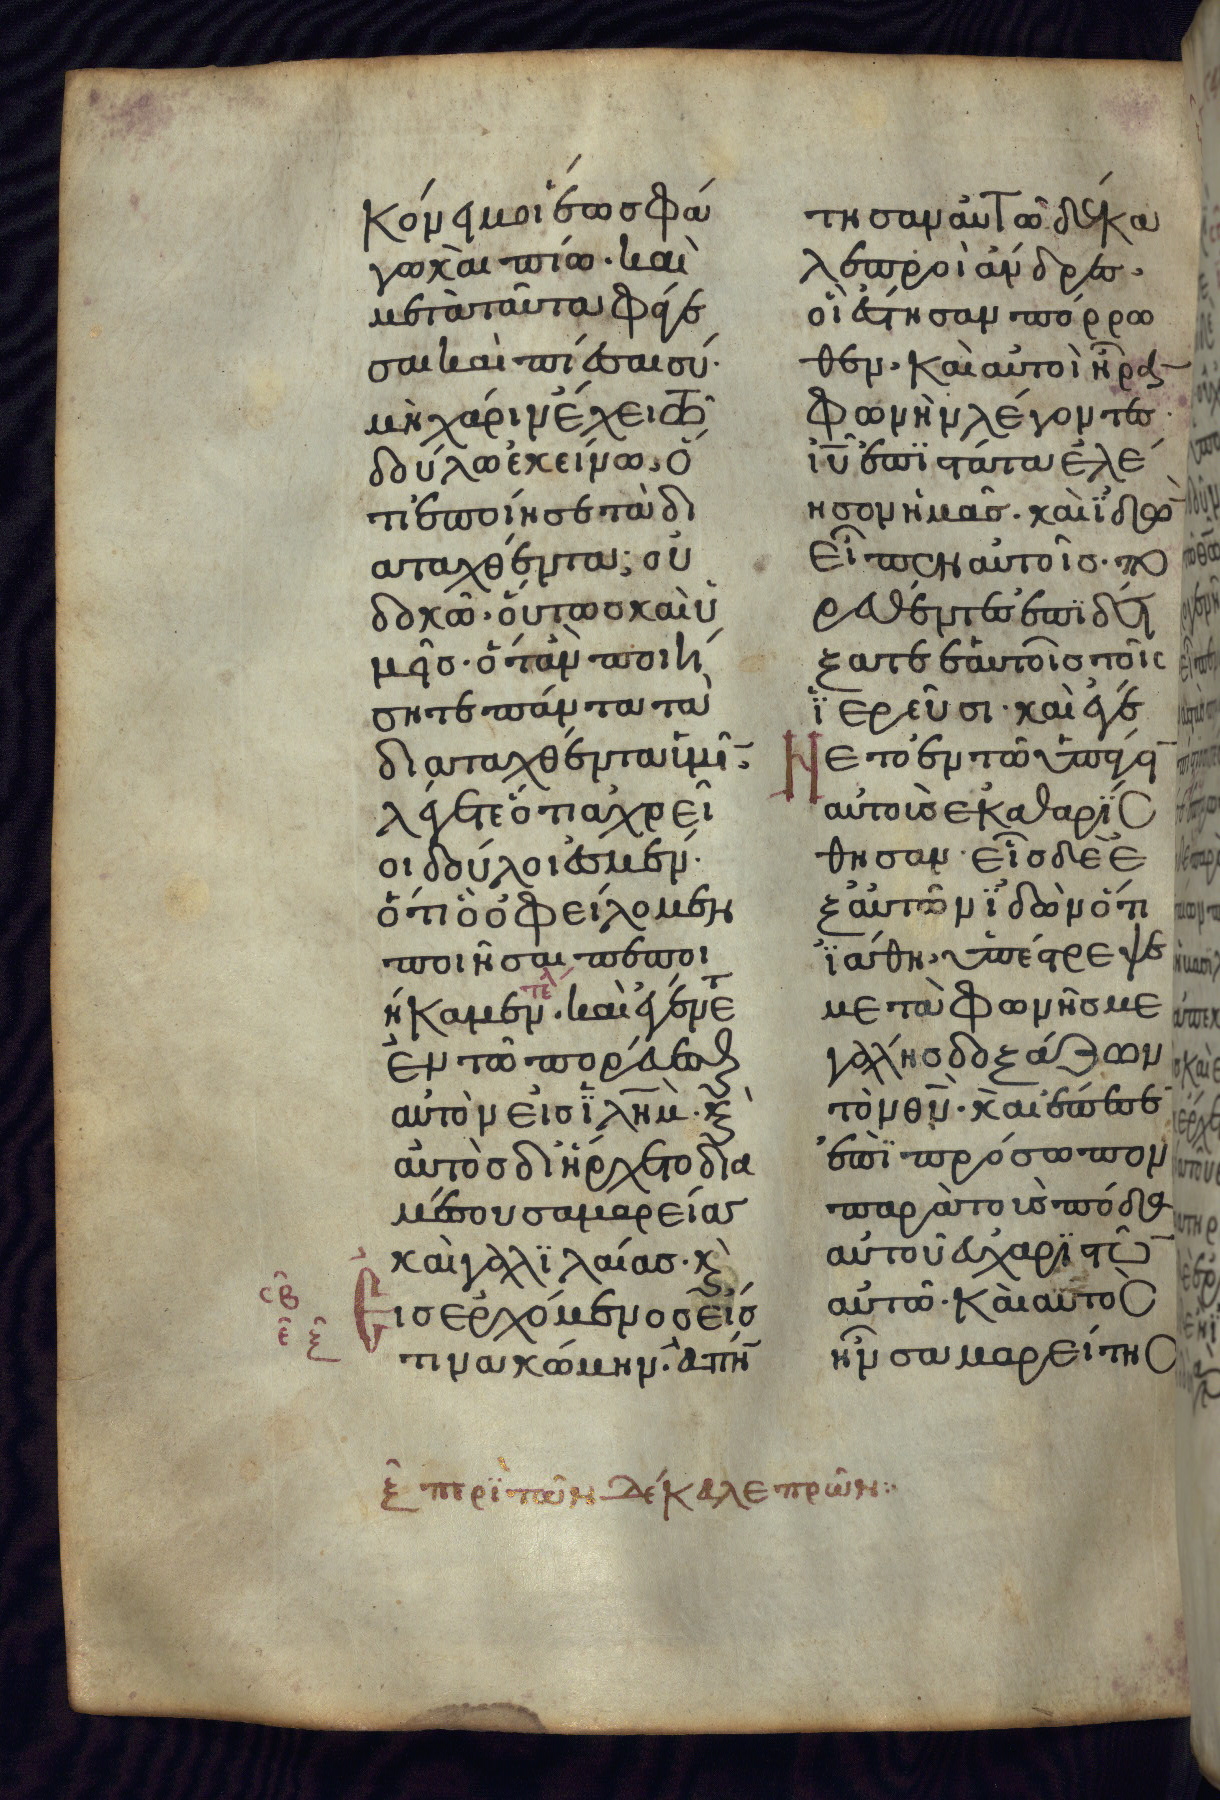 κόνει μοι ἕως φά
γω καὶ πίω· καὶ
μετὰ ταῦτα φάγε
σαι καὶ πίεσαι σύ·
μὴ χάριν ἔχει τῶ
δούλω ἐκείνω, ὅ
τι ἐποίησε τὰ δι
αταχθέντα; οὐ
δοκῶ· οὕτως καὶ ὑ
μεῖς· ὅταν ποιή
σητε πάντα τὰ
διαταχθέντα ὑμῖ·
λέγετε ὅτι ἀχρεῖ
οι δοῦλοι ἐσμεν·
ὅτι ὃ ὀφείλομεν
ποιῆσαι πεποι
τελ
ήκαμεν· καὶ ἐγένετ
ἐν τῶ πορεύεσθ
αὐτὸν εἰς ἰλημ· κ
αὐτὸς διήρχετο δια
μέσου σαμαρείας
καὶ γαλιλαίας· κ
Εἰσερχομένου εἰς
τινα κώμην· ἀπή
τησαν αὐτῶ δέκα
λεπροὶ ἄνδρες·
οἳ ἔστησαν πόρρω
θεν· καὶ αὐτοὶ ἦραν
φωνὴν λέγοντες·
ιυ ἐπιστάτα ἐλέ
ησον ἡμᾶς· καὶ ἰδὼν
εἶπεν αὐτοῖς· πο
ρευθέντες ἐπιδεί
ξατε ἑαυτοῖς τοῖς
ἱερεῦσι· καὶ ἐγέ
Νετο ἐν τῶ ὑπάγειν
αὐτοὺς ἐκαθαρίσ
θησαν· εἷς δὲ ἐ
ξ αὐτῶν ἰδὼν ὅτι
ἰάθη, ὑπέστρεψε
μετὰ φωνῆς με
γάλης δοξάζων
τὸν θν· καὶ ἔπεσεν
ἐπὶ πρόσωπον
παρὰ τοὺς πόδας
αὐτοῦ εὐχαριστῶν
αὐτῶ· καὶ αὐτὸς
ἦν σαμαρείτης
ξ περὶ τῶν δέκα λεπρῶν: